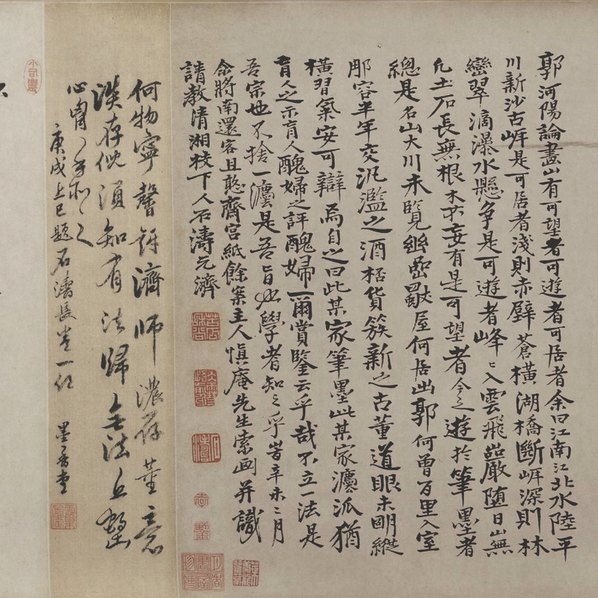 郭河陽論畫山有可望者可遊者可居者余曰江南江北水陸平
川新沙古岸是可居者淺則赤壁蒼橫湖橋斷岸深則林
巒翠滴瀑水懸爭是可遊者峰〻入雲飛巖墮日山無
凡土石長無根木不妄有是可望者今之遊於筆墨者
總是名山大川未覽幽巖獨屋何居出郭何曾百里入室
那容半年交泛濫之酒柸貨簇新之古董道眼未明縱
橫習氣安可辯焉自之曰此某家筆墨此某家灋派猶
盲人之示盲人醜婦之評醜婦爾賞鑒云乎哉不立一法是
吾宗也不捨一灋是吾旨也學者知之乎旹辛未二月
余將南還客且憨齋宮紙餘案主人慎庵先生索畫并識
請教清湘枝下人石濤元濟
何物寧馨許濟師濃存董意
淡存倪須知有法歸無法丘壑
心胸
庚戌上巳題石濤長卷一